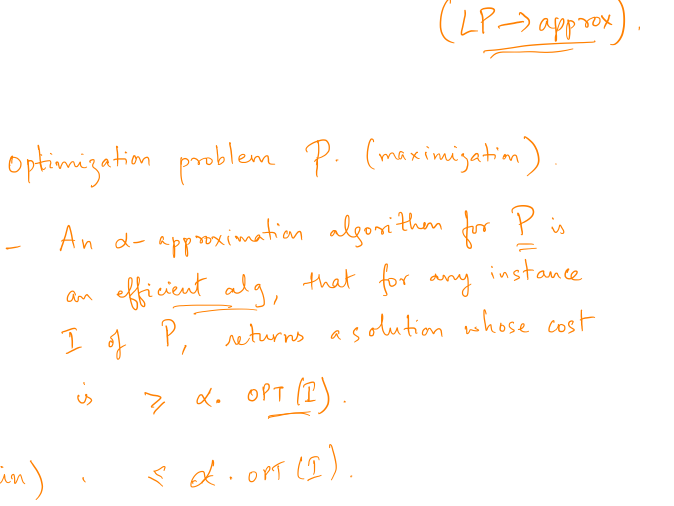 (LP → approx).
Optimization problem P. (maximization).
- An α-approximation algorithm for P is
an efficient alg, that for any instance
I of P, returns a solution whose cost
is ≥ α. OPT (I).
in) . ≤ α. OPT (I).